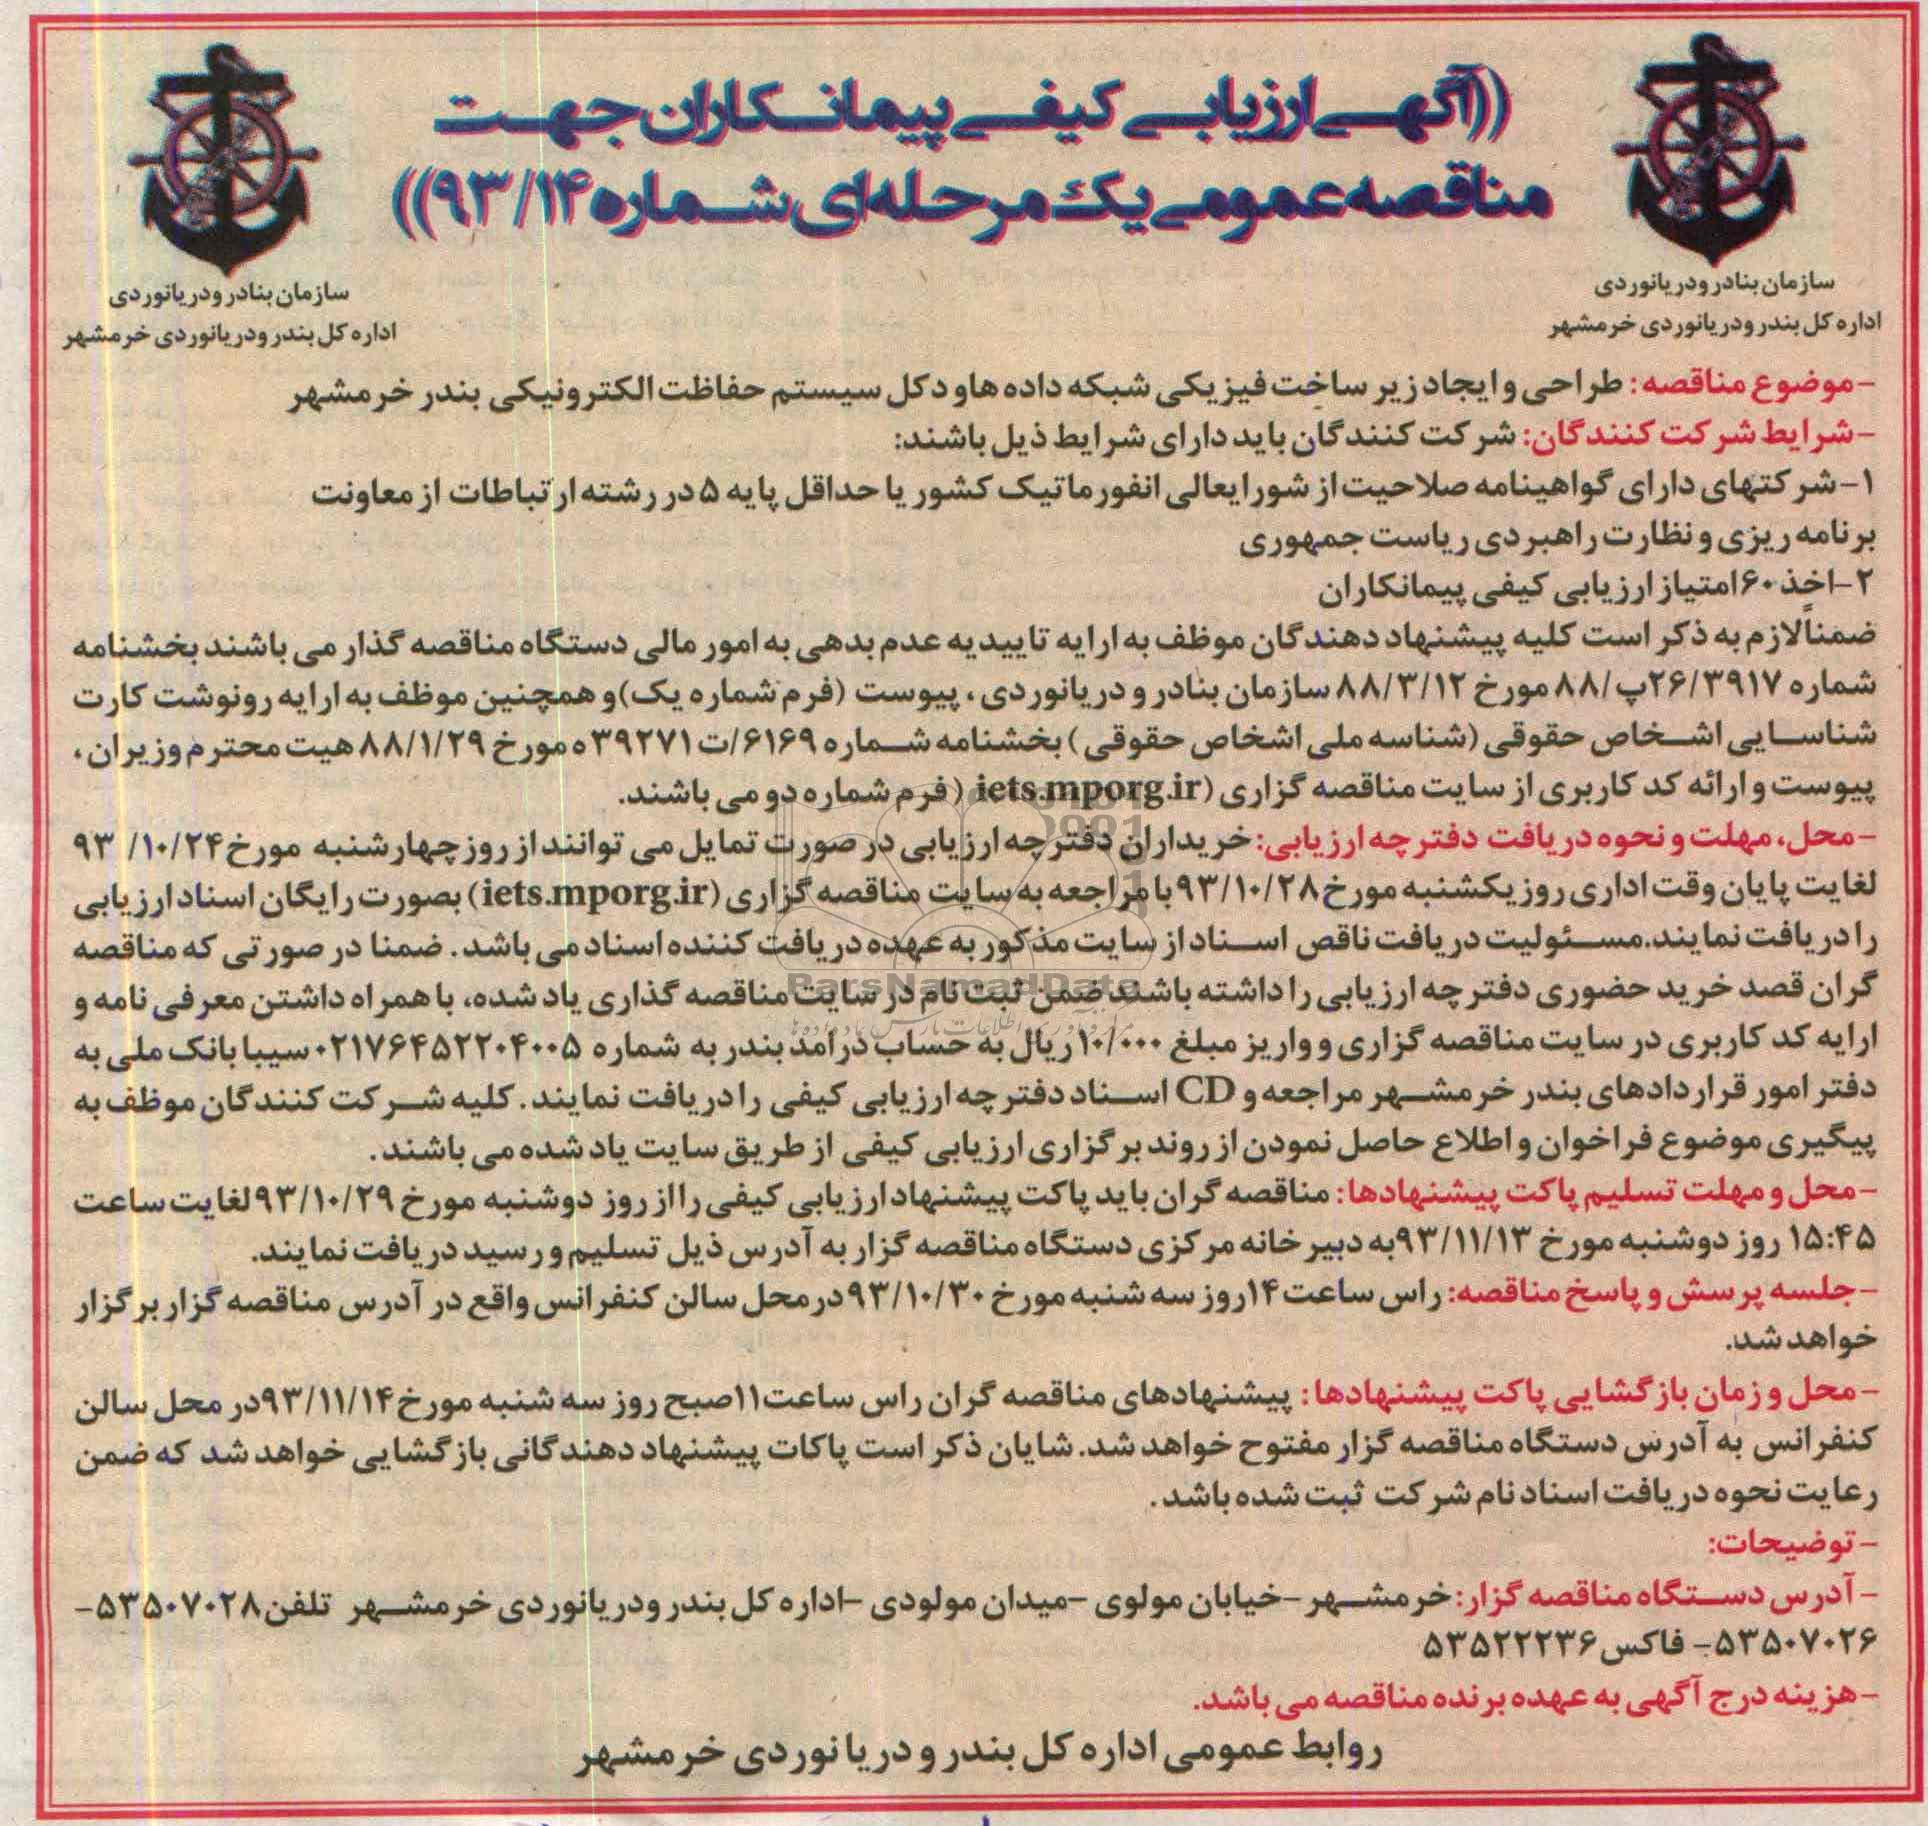 ((آگهی ارزیابی کیفی پیمانکاران جهت
مناقصه عمومی یک مرحله‌ای شماره ۹۳/۱۴))
سازمان بنادر و دریانوردی
اداره کل بندر و دریانوردی خرمشهر
سازمان بنادر و دریانوردی
اداره کل بندر و دریانوردی خرمشهر
-موضوع مناقصه: طراحی و ایجاد زیر ساخت فیزیکی شبکه داده ها و دکل سیستم حفاظت الکترونیکی بندر خرمشهر
-شرایط شرکت کنندگان: شرکت کنندگان باید دارای شرایط ذیل باشند:
۱-شرکتهای دارای گواهینامه صلاحیت از شورایعالی انفورماتیک کشور یا حداقل پایه ۵ در رشته ارتباطات از معاونت
برنامه ریزی و نظارت راهبردی ریاست جمهوری
۲-اخذ ۶۰ امتیاز ارزیابی کیفی پیمانکاران
ضمناً لازم به ذکر است کلیه پیشنهاد دهندگان موظف به ارایه تاییدیه عدم بدهی به امور مالی دستگاه مناقصه گذار می باشند بخشنامه
شماره ۲۶/۳۹۱۷پ/۸۸ مورخ ۸۸/۳/۱۲ سازمان بنادر و دریانوردی، پیوست (فرم شماره یک) و همچنین موظف به ارایه رونوشت کارت
شناسایی اشخاص حقوقی (شناسه ملی اشخاص حقوقی) بخشنامه شماره ۶۱۶۹/ت ۳۹۲۷۱ ه مورخ ۸۸/۱/۲۹ هیت محترم وزیران،
پیوست و ارائه کد کاربری از سایت مناقصه گزاری (iets.mporg.ir ( فرم شماره دو می باشند.
-محل، مهلت و نحوه دریافت دفترچه ارزیابی: خریداران دفترچه ارزیابی در صورت تمایل می توانند از روز چهارشنبه مورخ ۱۰/۲۴/ ۹۳
لغایت پایان وقت اداری روز یکشنبه مورخ ۹۳/۱۰/۲۸ با مراجعه به سایت مناقصه گزاری (iets.mporg.ir) بصورت رایگان اسناد ارزیابی
را دریافت نمایند.مسئولیت دریافت ناقص اسناد از سایت مذکور به عهده دریافت کننده اسناد می باشد. ضمنا در صورتی که مناقصه
گران قصد خرید حضوری دفترچه ارزیابی را داشته باشند ضمن ثبت نام در سایت مناقصه گذاری یاد شده، با همراه داشتن معرفی نامه و
ارایه کد کاربری در سایت مناقصه گزاری و واریز مبلغ ۱۰/۰۰۰ ریال به حساب درآمد بندر به شماره ۰۲۱۷۶۴۵۲۲۰۴۰۰۵ سیبا بانک ملی به
دفتر امور قراردادهای بندر خرمشهر مراجعه و CD اسناد دفترچه ارزیابی کیفی را دریافت نمایند. کلیه شرکت کنندگان موظف به
پیگیری موضوع فراخوان و اطلاع حاصل نمودن از روند برگزاری ارزیابی کیفی از طریق سایت یاد شده می باشند.
-محل و مهلت تسلیم پاکت پیشنهادها: مناقصه گران باید پاکت پیشنهاد ارزیابی کیفی را از روز دوشنبه مورخ ۹۳/۱۰/۲۹ لغایت ساعت
۱۵:۴۵ روز دوشنبه مورخ ۹۳/۱۱/۱۳ به دبیرخانه مرکزی دستگاه مناقصه گزار به آدرس ذیل تسلیم و رسید دریافت نمایند.
-جلسه پرسش و پاسخ مناقصه: راس ساعت ۱۴ روز سه شنبه مورخ ۹۳/۱۰/۳۰ در محل سالن کنفرانس واقع در آدرس مناقصه گزار برگزار
خواهد شد.
-محل و زمان بازگشایی پاکت پیشنهادها: پیشنهادهای مناقصه گران راس ساعت ۱۱ صبح روز سه شنبه مورخ ۹۳/۱۱/۱۴ در محل سالن
کنفرانس به آدرس دستگاه مناقصه گزار مفتوح خواهد شد. شایان ذکر است پاکات پیشنهاد دهندگانی بازگشایی خواهد شد که ضمن
رعایت نحوه دریافت اسناد نام شرکت ثبت شده باشد.
-توضیحات:
-آدرس دستگاه مناقصه گزار: خرمشهر -خیابان مولوی -میدان مولودی -اداره کل بندر و دریانوردی خرمشهر تلفن ۵۳۵۰۷۰۲۸-
۵۳۵۰۷۰۲۶- فاکس ۵۳۵۲۲۲۳۶
-هزینه درج آگهی به عهده برنده مناقصه می باشد.
روابط عمومی اداره کل بندر و دریانوردی خرمشهر
ParsNamadData